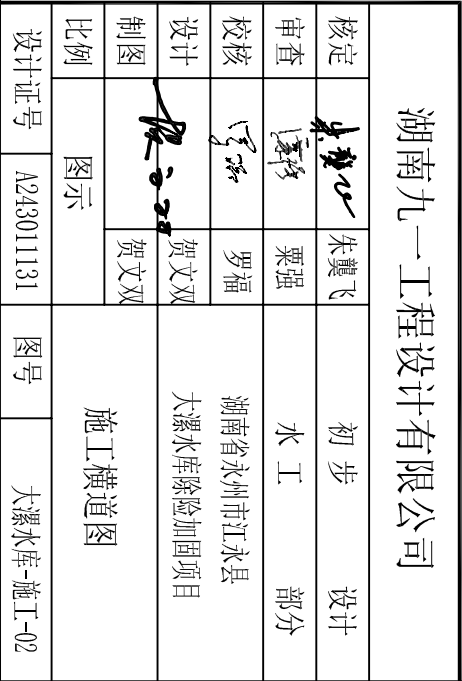 湖南九一工程设计有限公司
核定 朱龑飞 初步 设计
审查 粟强 水工 部分
校核 罗福 湖南省永州市江永县
设计 贺文双 大漯水库除险加固项目
制图 贺文双
比例 图示 施工横道图
设计证号 A243011131 图号 大漯水库-施工-02